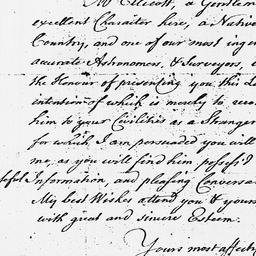 Mr Ellicott, a Gentlem
excellent Character here, a Native
Country, and one of our most inge
accurate Astronomers, & Surveyors,
the Honour of presenting you this L
intention of which is merely to
him to your Civilities as a Stranger
for which I am persuaded you will
me, as you will find him possess'd
Information, and pleasing Conversa
My best Wishes attend you & yours
with great and sincere Esteem.
Yours most affect